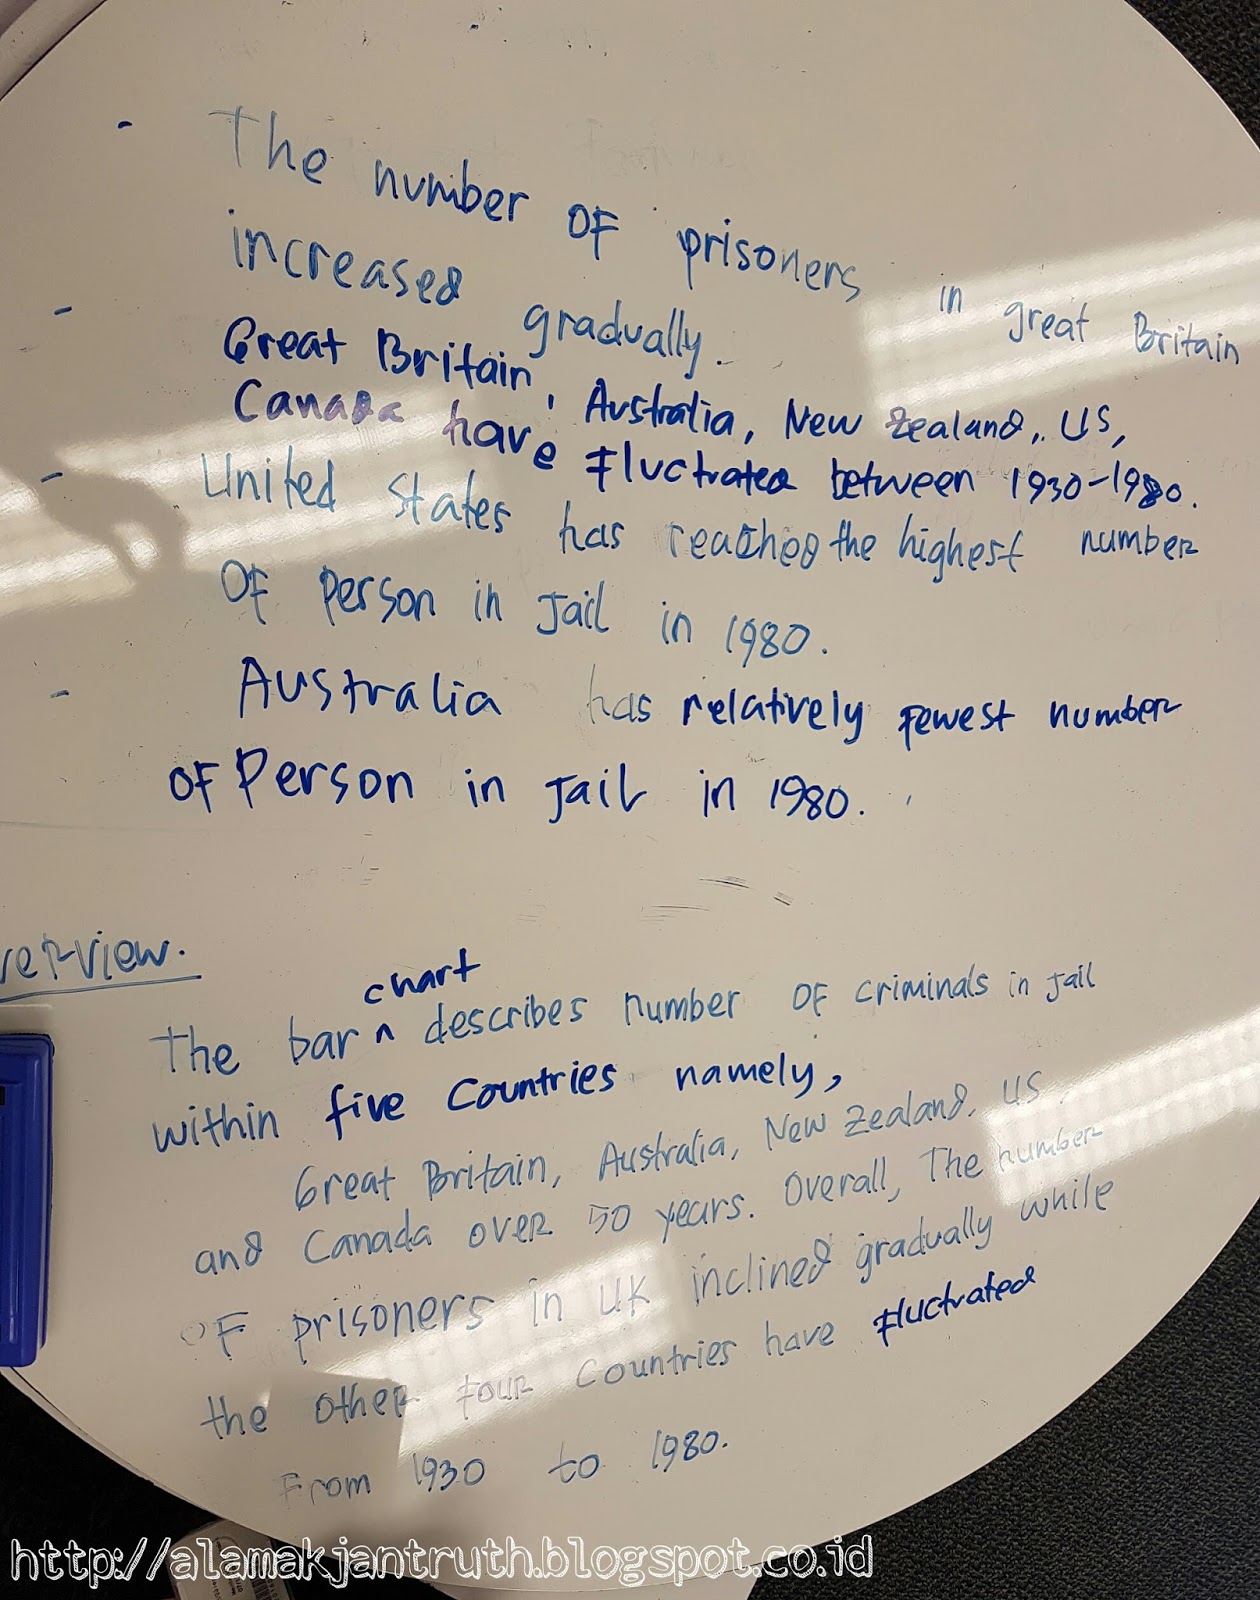 - The number of prisoners in great Britain
increased gradually.
- Great Britain, Australia, New Zealand, US,
Canada have fluctrated between 1930-1980.
- United States has reached the highest number
of person in jail in 1980.
- Australia has relatively fewest number
of Person in jail in 1980.
verview.
chart
The bar ^ describes number of criminals in jail
within five countries namely,
Great Britain, Australia, New Zealand, US,
and Canada over 50 years. Overall, The number
of prisoners in UK inclined gradually while
the other four countries have fluctrated
From 1930 to 1980.
http://alamakjantruth.blogspot.co.id